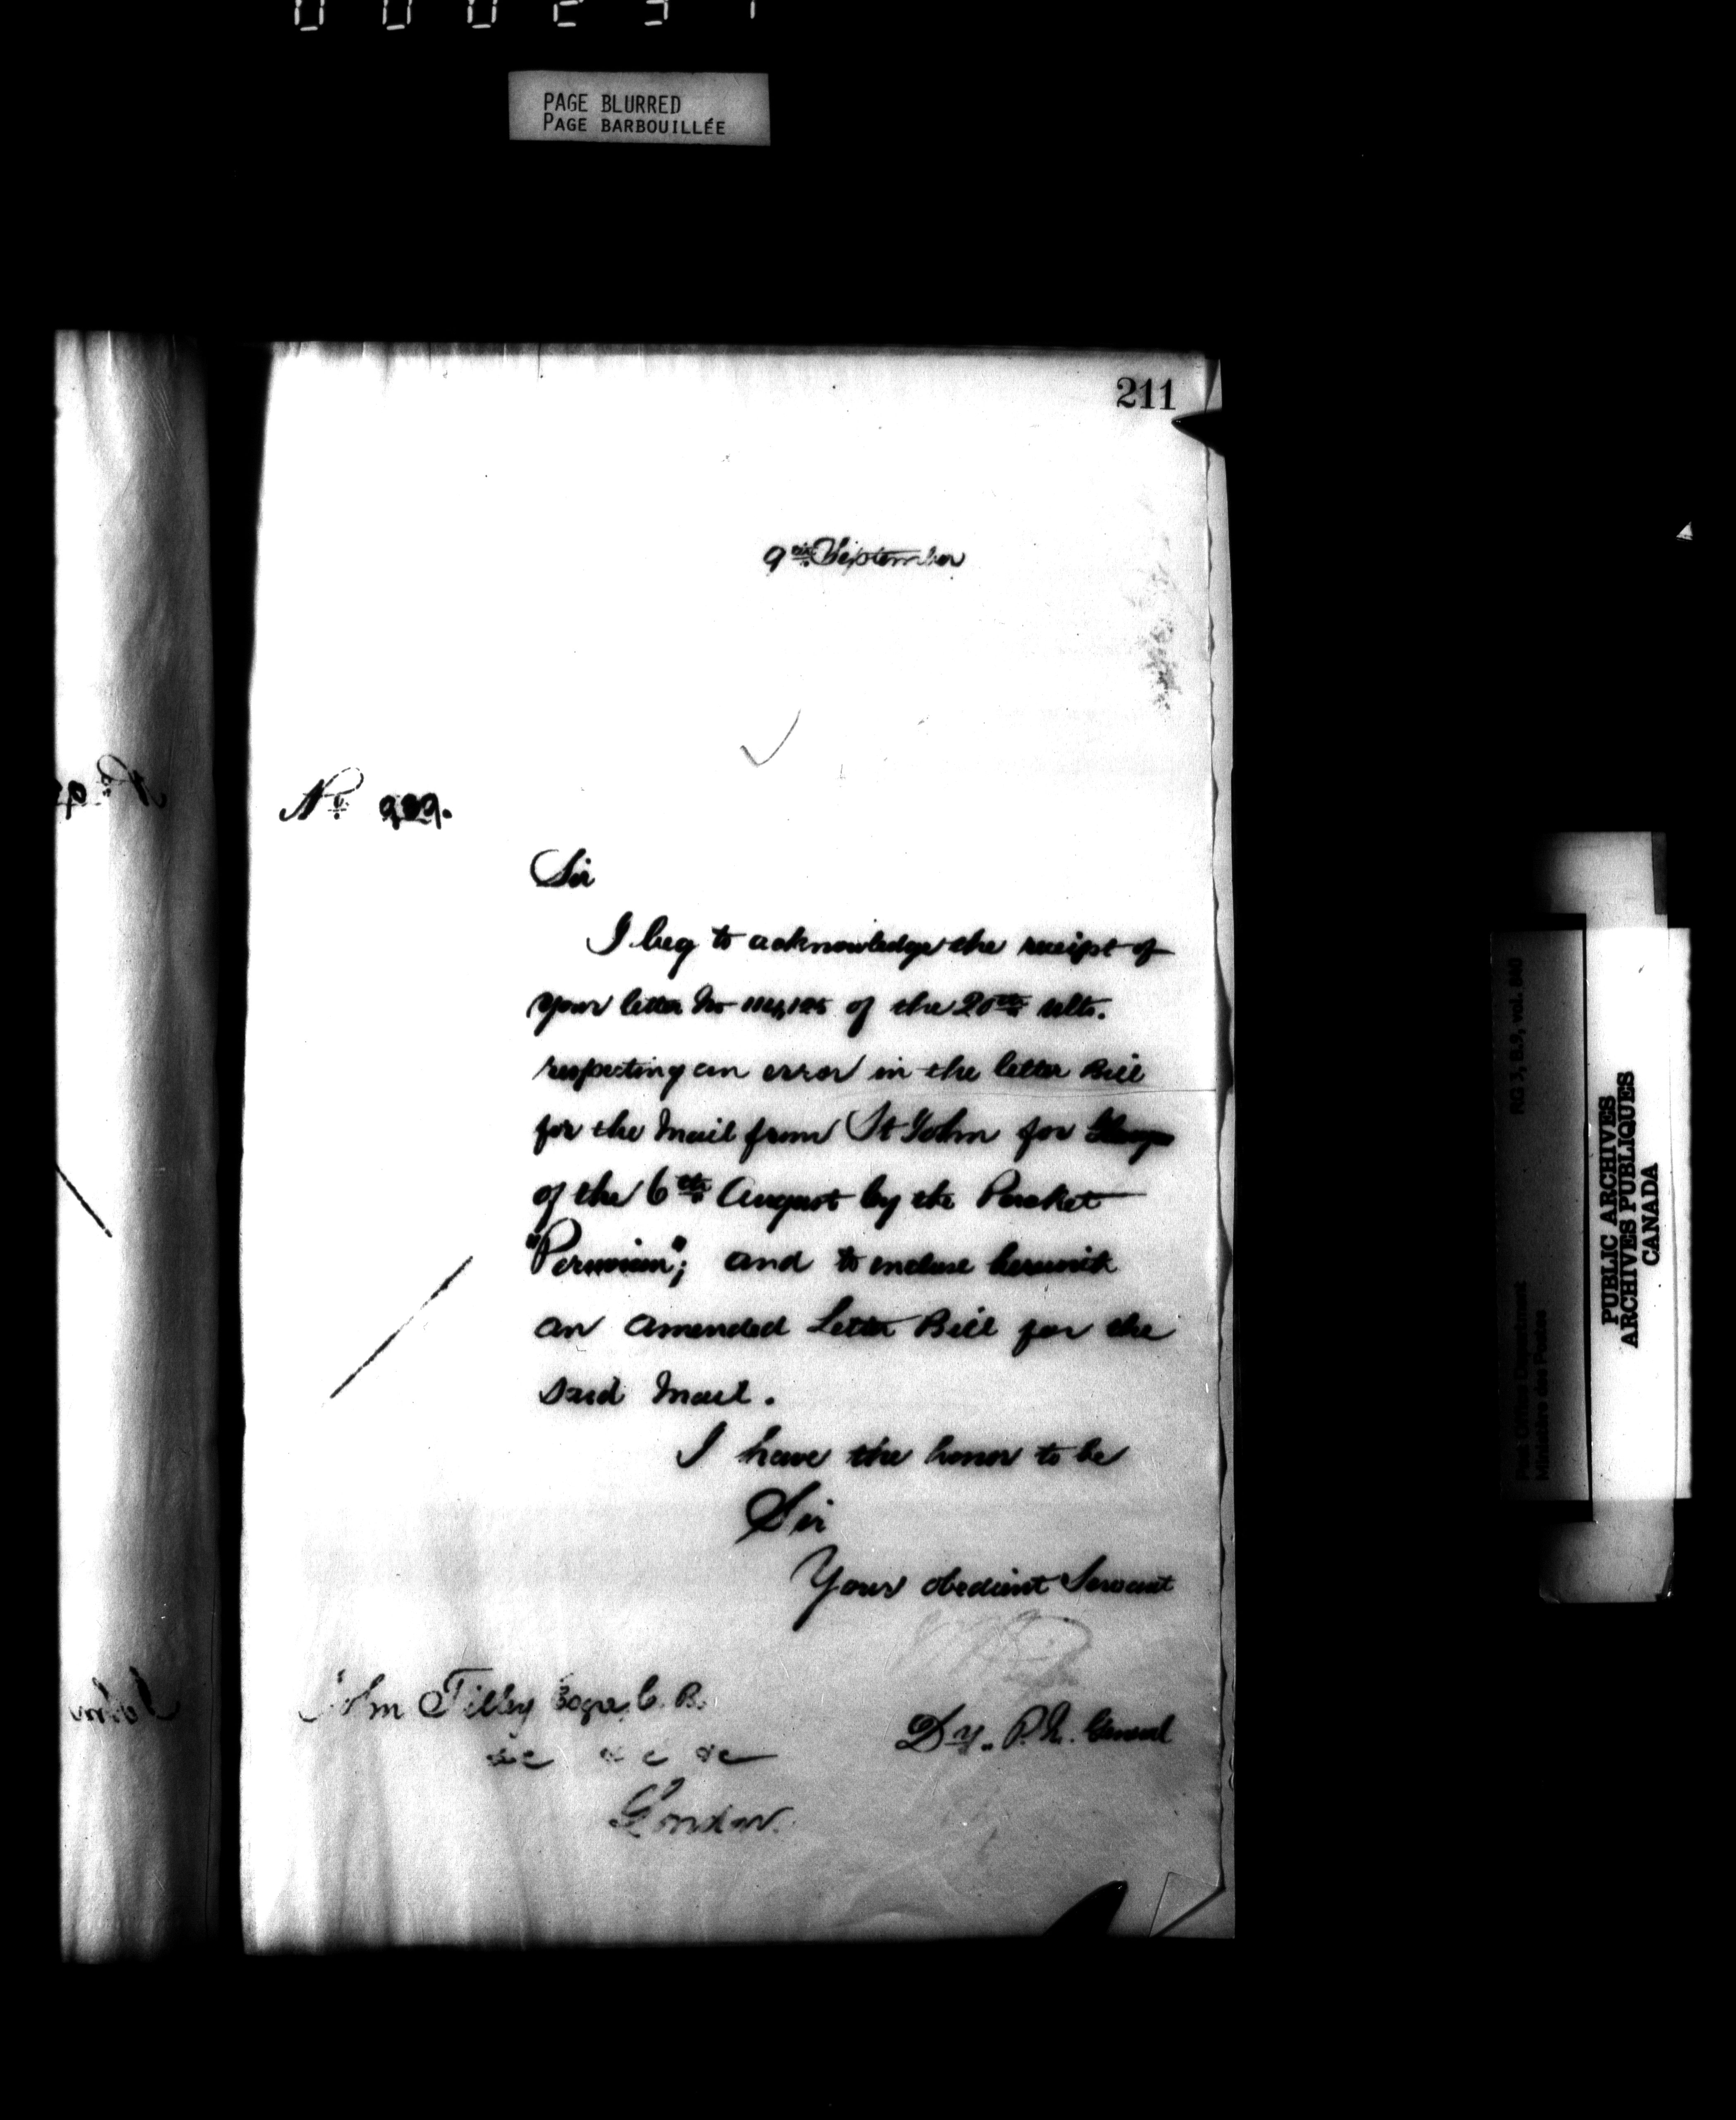 PAGE BLURRED
PAGE BARBOUILLÉE
211
9th September
No
Sir
I beg to acknowledge the receipt of
your letter No of the 20th ulto.
respecting an error in the letter Bill
for the Mail from St John for
of the 6th August by the Packet
"Peruvian"; and to enclose herewith
an amended Letter Bill for the
said Mail.
I have the honor to be
Sir
Your obedient Servant
John Tilley Esqre C. B.
&c &c &c
London.
Dy. P. M. General
RG 3, B.9, vol. 840
Post Office Department
Ministère des Postes
PUBLIC ARCHIVES
ARCHIVES PUBLIQUES
CANADA